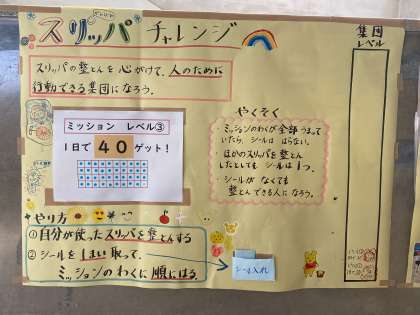 スリッパ チャレンジ
集団
レベル
スリッパの整とんを心がけて、人のために
行動できる集団になろう。
ミッション レベル③
1日で 40 ゲット!
やくそく
・ミッションのわくが全部うまって
いたら、シールは はらない。
・ほかのスリッパを整とん
したとしても シールは1つ。
・シールが なくても
整とんできる人になろう。
やり方
①自分が使ったスリッパを整とんする
②シールを1まい取って、
ミッションのわくに順にはる。
シール入れ